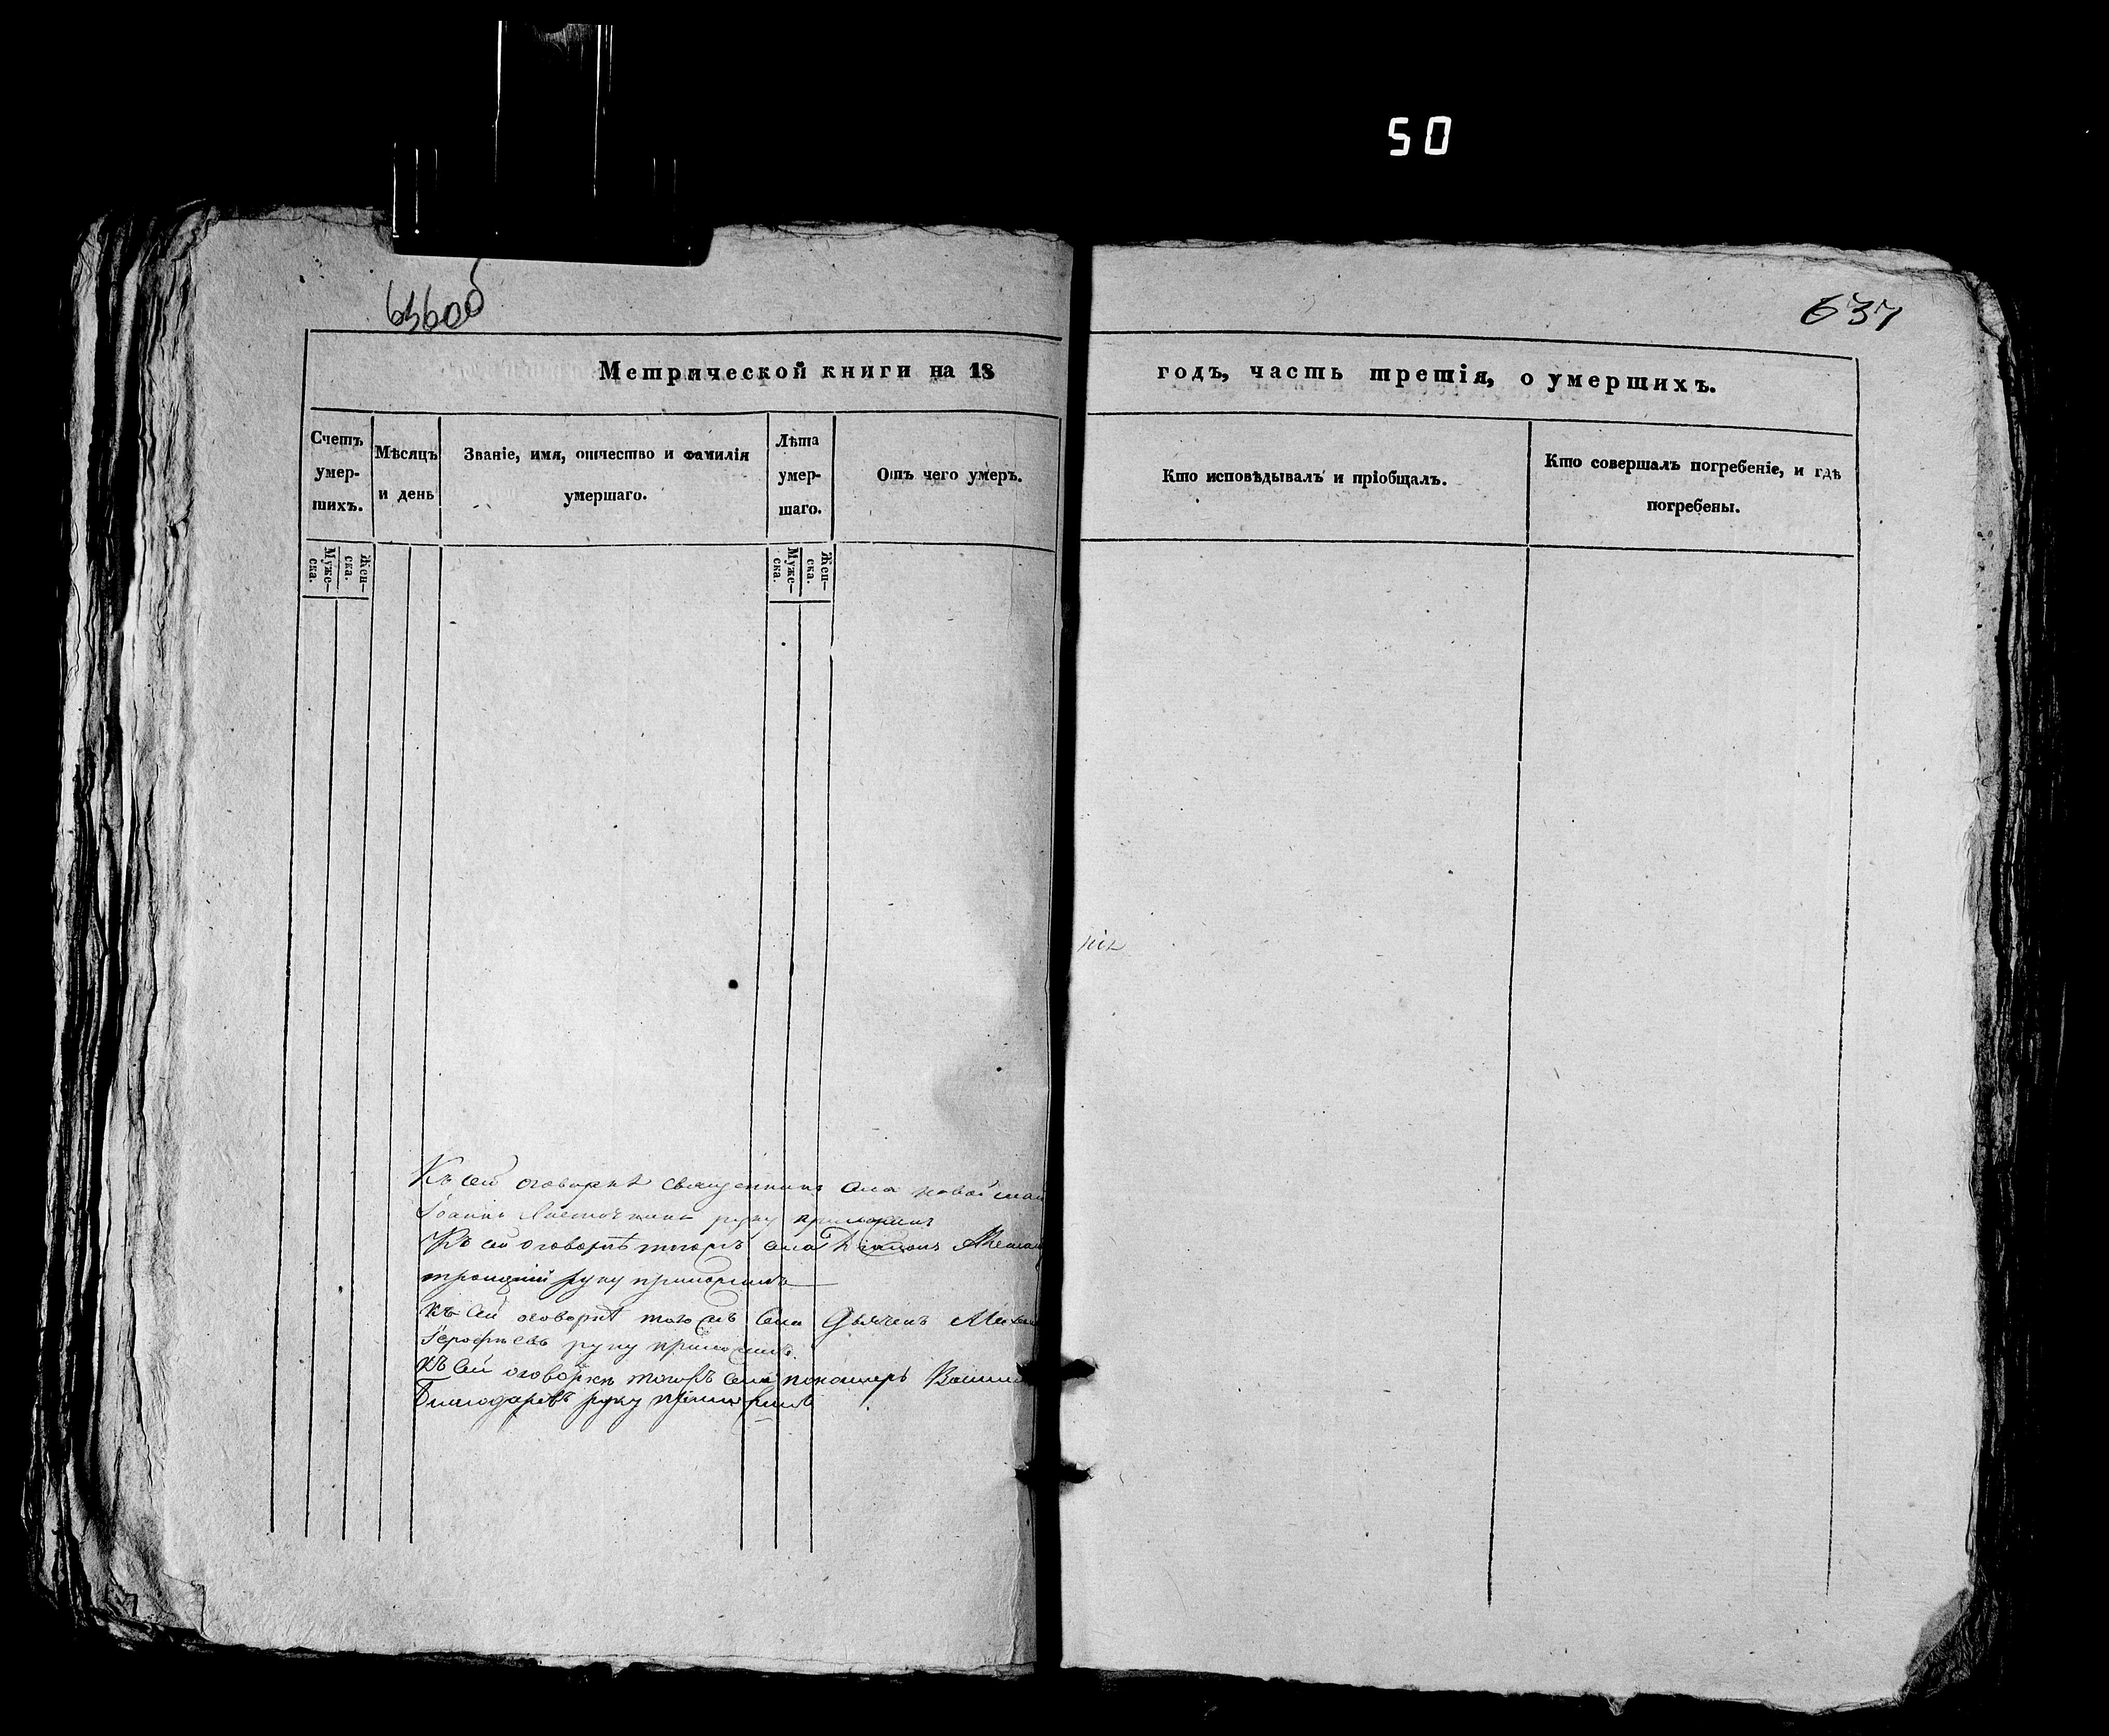 50
636об
637
Метрической книги на 18 годъ, часть третія, о умершихъ.
Счетъ умер-шихъ.
Муже-ска.
Жен-ска.
Мѣсяцъ и день
Званіе, имя, отчество и фамилія умершаго.
Лѣта умер-шаго.
Муже-ска.
Жен-ска.
Отъ чего умеръ.
Кто исповѣдывалъ и пріобщалъ.
Кто совершалъ погребеніе, и гдѣ погребены.
Къ сей оговоркѣ священникъ села новой
Іоаннъ руку приложилъ
Къ сей оговоркѣ тогожъ села Діаконъ
троицкій руку приложилъ
къ сей оговоркѣ тогожъ села Дьячекъ
Герофеевъ руку приложилъ.
къ сей оговоркѣ тогожъ села пономарь
руку приложилъ